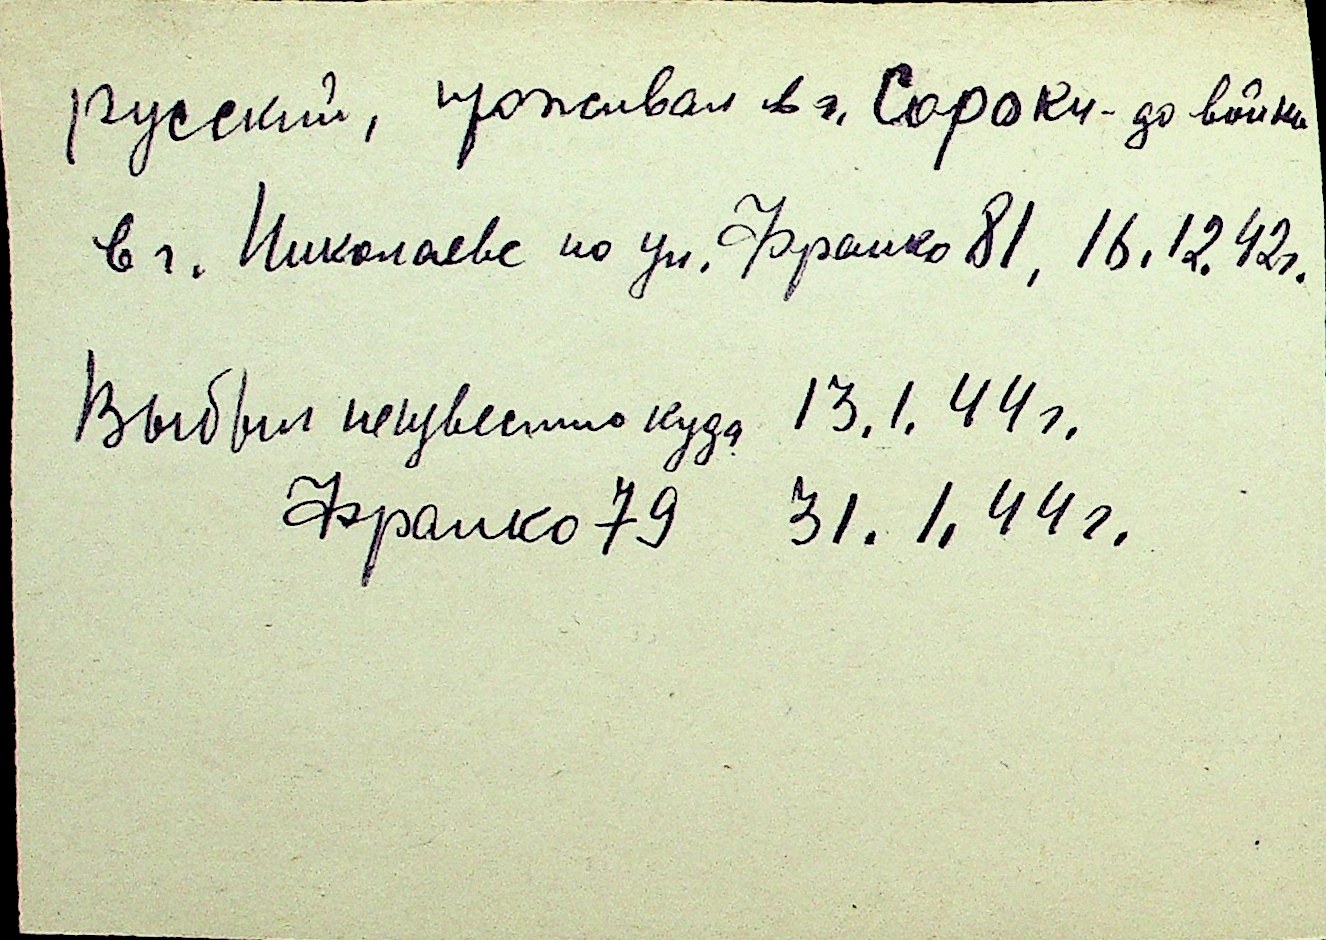 русский, проживал в г. Сороки - до войны
в г. Николаеве по ул. Франко 81, 16.12.42г.
Выбыл неизвестно куда 13.1.44г.
Франко 79 31.1.44г.